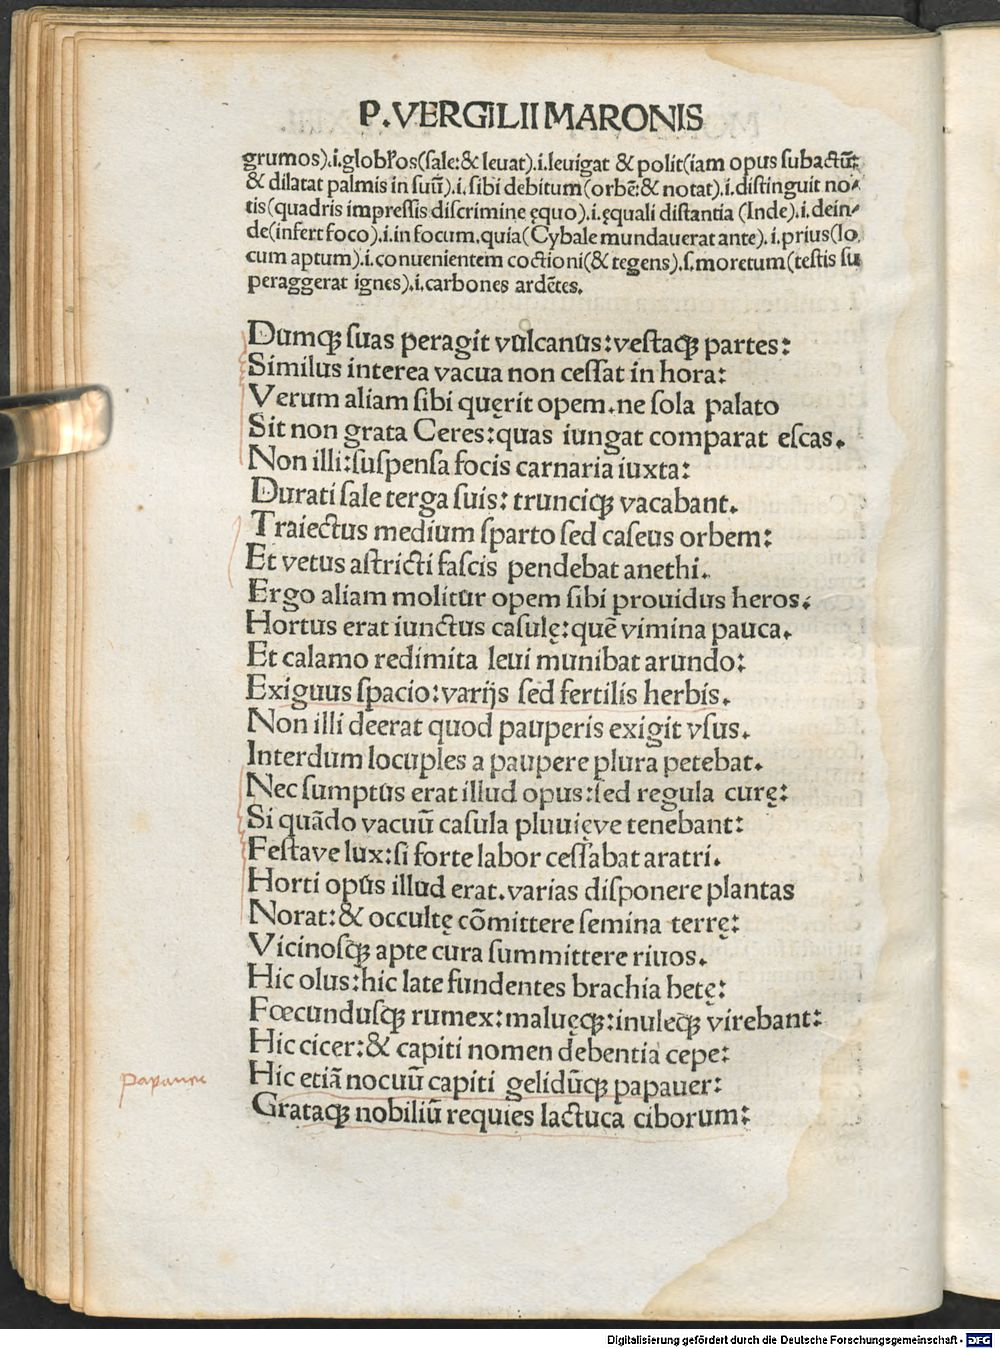 P.VERGILII MARONIS
grumos).i.globros(sale:& leuat).i.leuigat & polit(iam opus subactū:
& dilatat palmis in suū).i.sibi debitum(orbē:& notat).i.distinguit no-
tis(quadris impressis discrimine ęquo).i.ęquali distantia (Inde).i.dein-
de(infert foco).i.in focum.quia(Cybale mundauerat ante).i.prius(lo
cum aptum).i.conuenientem coctioni(& tegens).s.moretum(testis su
peraggerat ignes).i.carbones ardētes.
Dumqȝ suas peragit vulcanus:vestaqȝ partes:
Similus interea vacua non cessat in hora:
Verum aliam sibi quęrit opem.ne sola palato
Sit non grata Ceres:quas iungat comparat escas.
Non illi:suspensa focis carnaria iuxta:
Durati sale terga suis: trunciqȝ vacabant.
Traiectus medium sparto sed caseus orbem:
Et vetus astricti fascis pendebat anethi.
Ergo aliam molitur opem sibi prouidus heros:
Hortus erat iunctus casulę:quē vimina pauca.
Et calamo redimita leui munibat arundo:
Exiguus spacio:varijs sed fertilis herbis.
Non illi deerat quod pauperis exigit vsus.
Interdum locuples a paupere plura petebat.
Nec sumptus erat illud opus:sed regula curę:
Si quādo vacuū casula pluuięve tenebant:
Festave lux:si forte labor cessabat aratri.
Horti opus illud erat.varias disponere plantas
Norat:& occultę cōmittere semina terrę:
Vicinosqȝ apte cura summittere riuos.
Hic olus:hic late fundentes brachia betę:
Fœcundusqȝ rumex:maluęqȝ:inuleqȝ virebant:
Hic cicer:& capiti nomen debentia cepe:
Hic etiā nocuū capiti gelidūqȝ papauer:
Grataqȝ nobiliū requies lactuca ciborum:
papauer
Digitalisierung gefördert durch die Deutsche Forschungsgemeinschaft - DFG